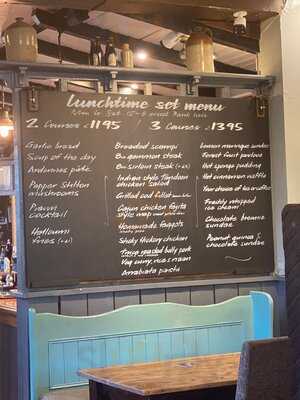 Lunchtime set menu
2 Courses £11.95 3 Courses £13.95
Garlic bread
Soup of the day
Ardennes pâté
Pepper Stilton
mushrooms
Prawn
cocktail
Halloumi
fries
Breaded scampi
8oz gammon steak
8oz sirloin steak
Indian style tandoori
chicken salad
Grilled cod fillet
Cajun chicken fajita
style wrap
Homemade faggots
Shaky Hickory chicken
roasted belly pork
Veg curry, rice & naan
Arrabiata pasta
Lemon meringue sundae
Forest fruit pavlova
Hot sponge pudding
Hot cinnamon waffle
Your choice of
Freshly whipped
ice cream
Chocolate brownie
sundae
Peanut &
chocolate sundae